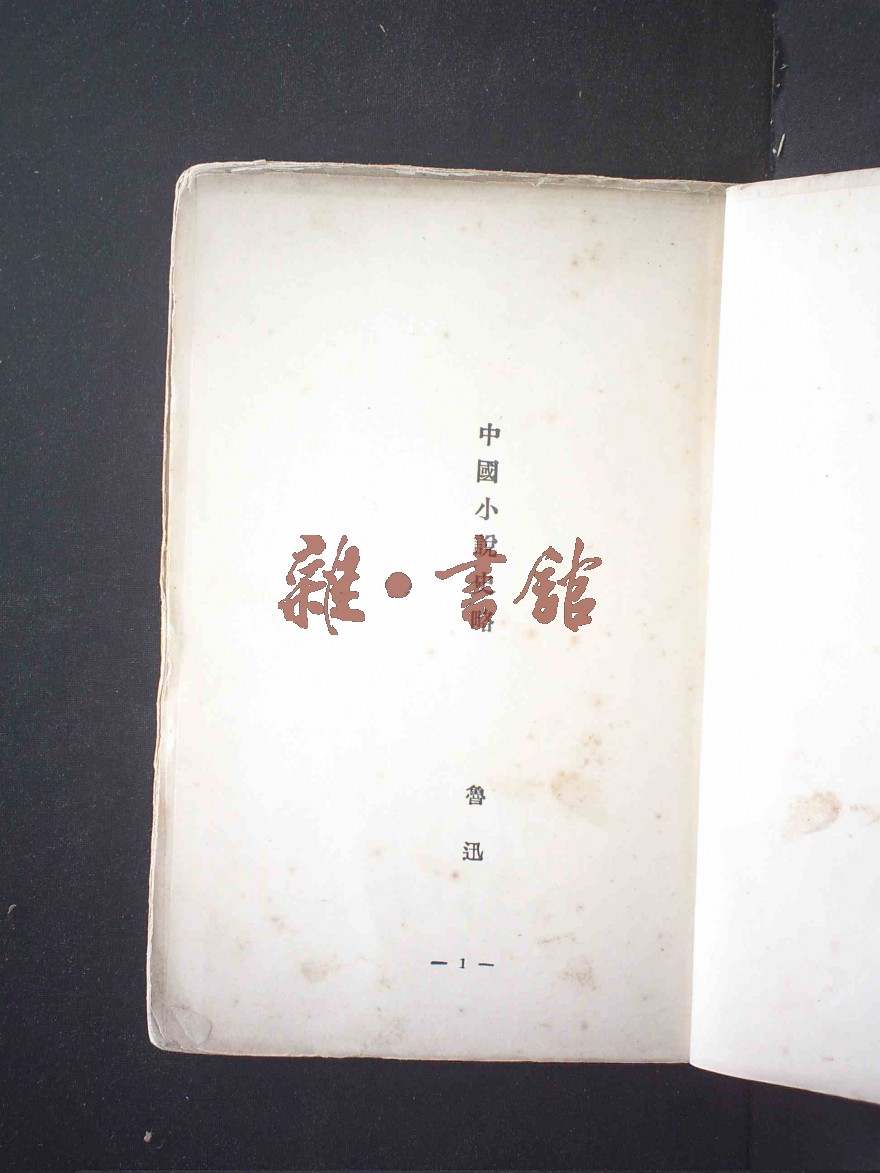 中國小說史略
雜·書館
魯迅
— 1 —